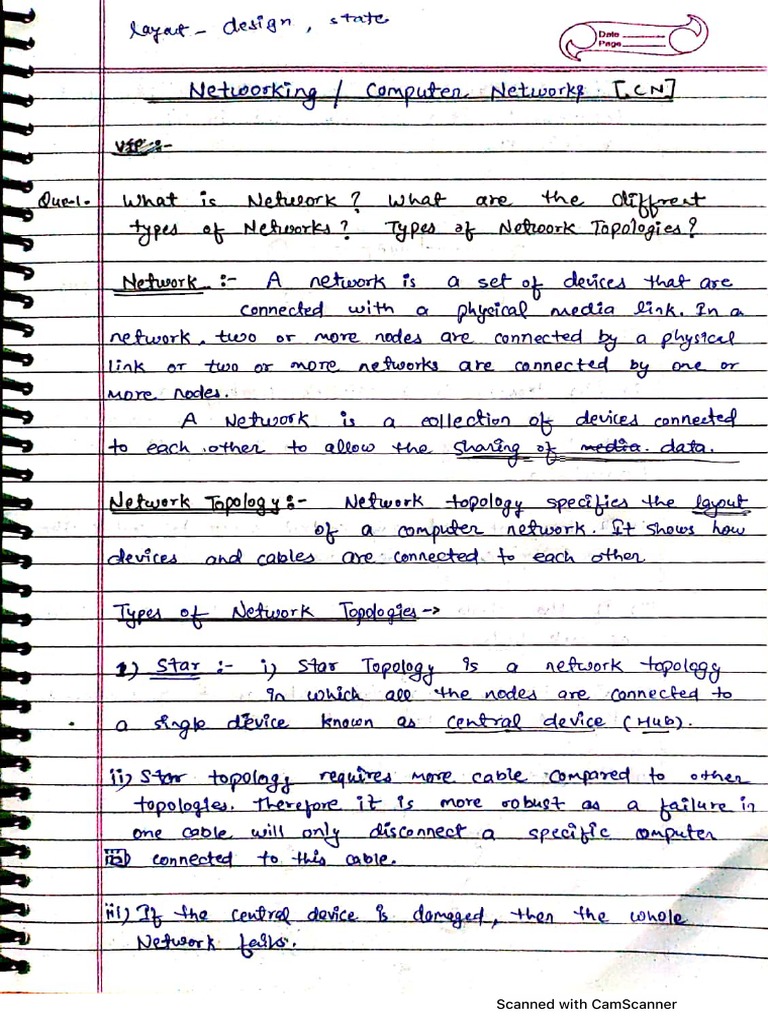 layout - design, state
Date
Page
Networking / Computer Networks [CN]
VIP :-
Que-1. What is Network? What are the different
types of Networks? Types of Network Topologies?
Network :- A network is a set of devices that are
connected with a physical media link. In a
network, two or more nodes are connected by a physical
link or two or more networks are connected by one or
more nodes.
A Network is a collection of devices connected
to each other to allow the sharing of media. data.
Network Topology :- Network topology specifies the layout
of a computer network. It shows how
devices and cables are connected to each other
Types of Network Topologies →
1) Star :- i) Star Topology is a network topology
in which all the nodes are connected to
a single device known as central device (Hub).
ii) Star topology requires more cable compared to other
topologies. Therefore it is more robust as a failure in
one cable will only disconnect a specific computer
connected to this cable.
iii) If the central device is damaged, then the whole
Network fails.
Scanned with CamScanner